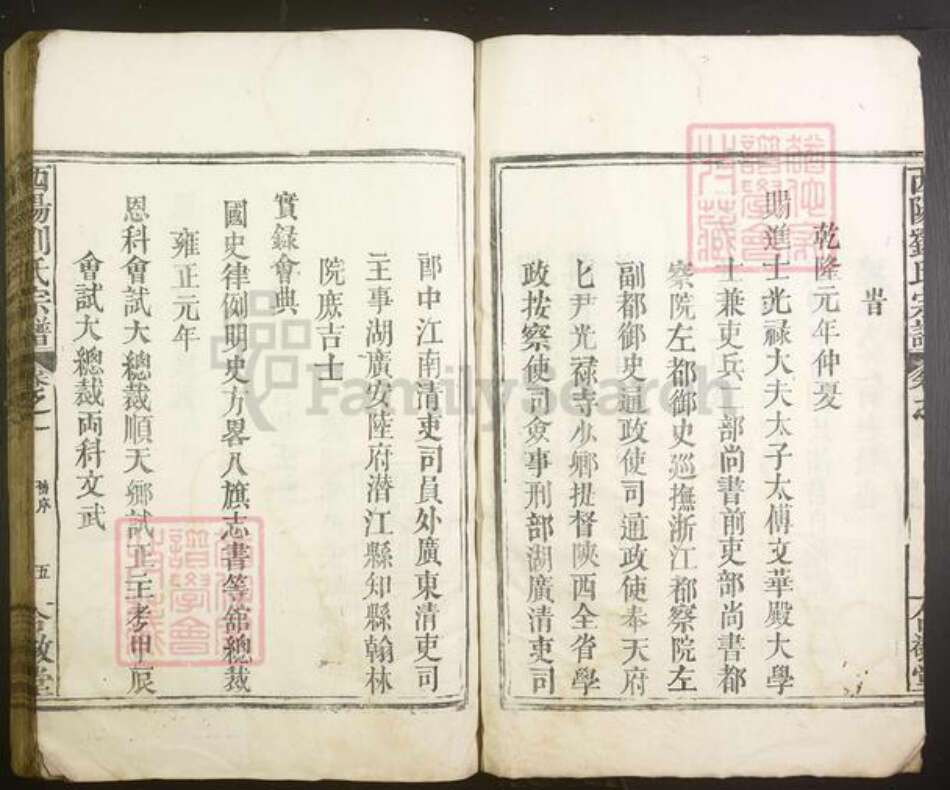 旹
乾隆元年仲夏
賜進士光禄大夫太子太傅文華殿大學
士兼吏兵二部尚書前吏部尚書都
察院左都御史巡撫浙江都察院左
副都御史通政使司通政使奉天府
尹光禄寺少卿提督陜西全省學
政按察使司僉事刑部湖廣清吏司
郎中江南清吏司員外廣東清吏司
主事湖廣安陸府潛江縣知縣翰林
院庶吉士
實録會典
國史律例明史方畧八旗志書等舘總裁
雍正元年
恩科會試大總裁順天鄉試正主考甲辰
會試大總裁両科文武
酉陽劉氏宗譜
卷之一
五
FamilySearch